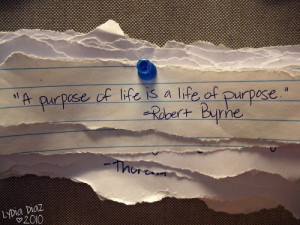 "A purpose of life is a life of purpose."
-Robert Byrne
LYDIA DIAZ
♡2010